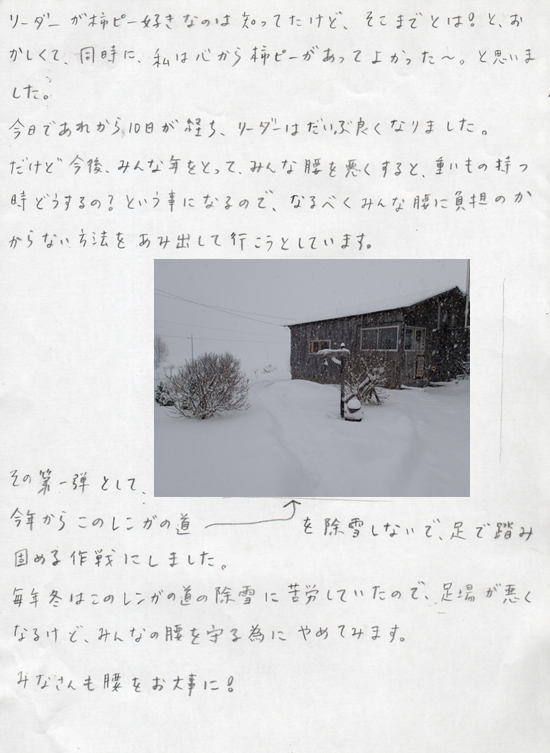 リーダーが柿ピー好きなのは知ってたけど、そこまでとは!と、お
かしくて、同時に、私は心から柿ピーがあってよかった～。と思いま
した。
今日であれから10日が経ち、リーダーはだいぶ良くなりました。
だけど今後、みんな年をとって、みんな腰を悪くすると、重いもの持つ
時どうするの?という事になるので、なるべくみんな腰に負担のか
からない方法をあみ出して行こうとしています。
その第一弾として、
今年からこのレンガの道 を除雪しないで、足で踏み
固める作戦にしました。
毎年冬はこのレンガの道の除雪に苦労していたので、足場が悪く
なるけど、みんなの腰を守る為にやめてみます。
みなさんも腰をお大事に!